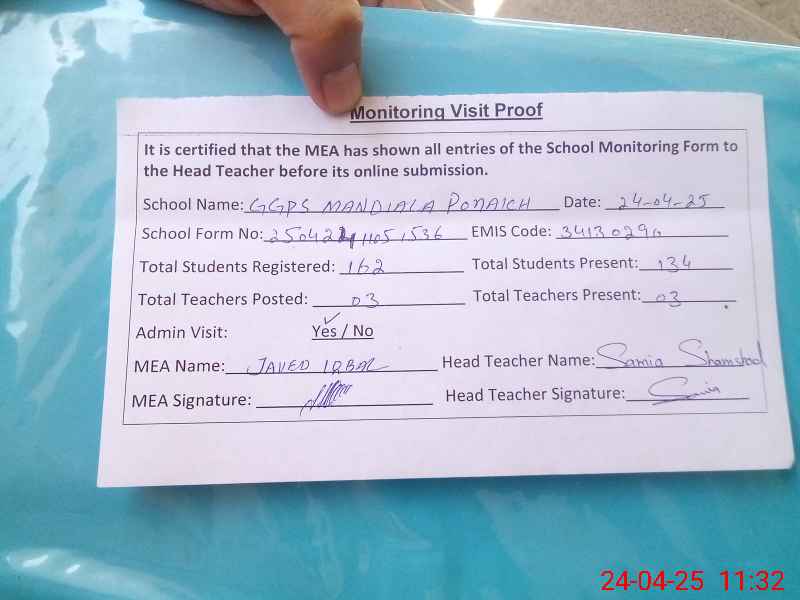 Monitoring Visit Proof
It is certified that the MEA has shown all entries of the School Monitoring Form to
the Head Teacher before its online submission.
School Name: GGPS MANDIALA PONAICH Date: 24-04-25
School Form No: EMIS Code:
Total Students Registered: 162 Total Students Present: 134
Total Teachers Posted: 03 Total Teachers Present: 03
Admin Visit: Yes / No
MEA Name: JAVED IQBAL Head Teacher Name: Samia Shamshad
MEA Signature: Head Teacher Signature: Samia
24-04-25 11:32